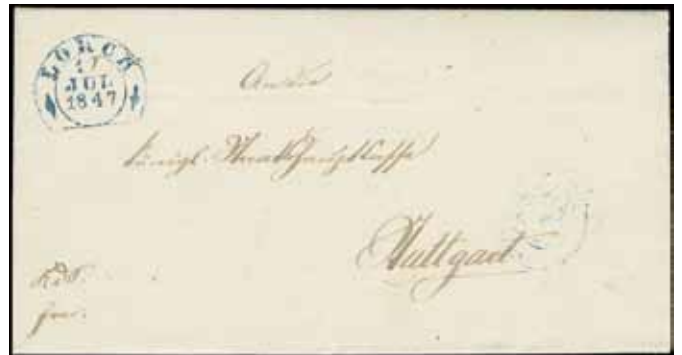 LORCH
17
JUL
1847
An die
königl. Staatshauptkasse
Stuttgart.